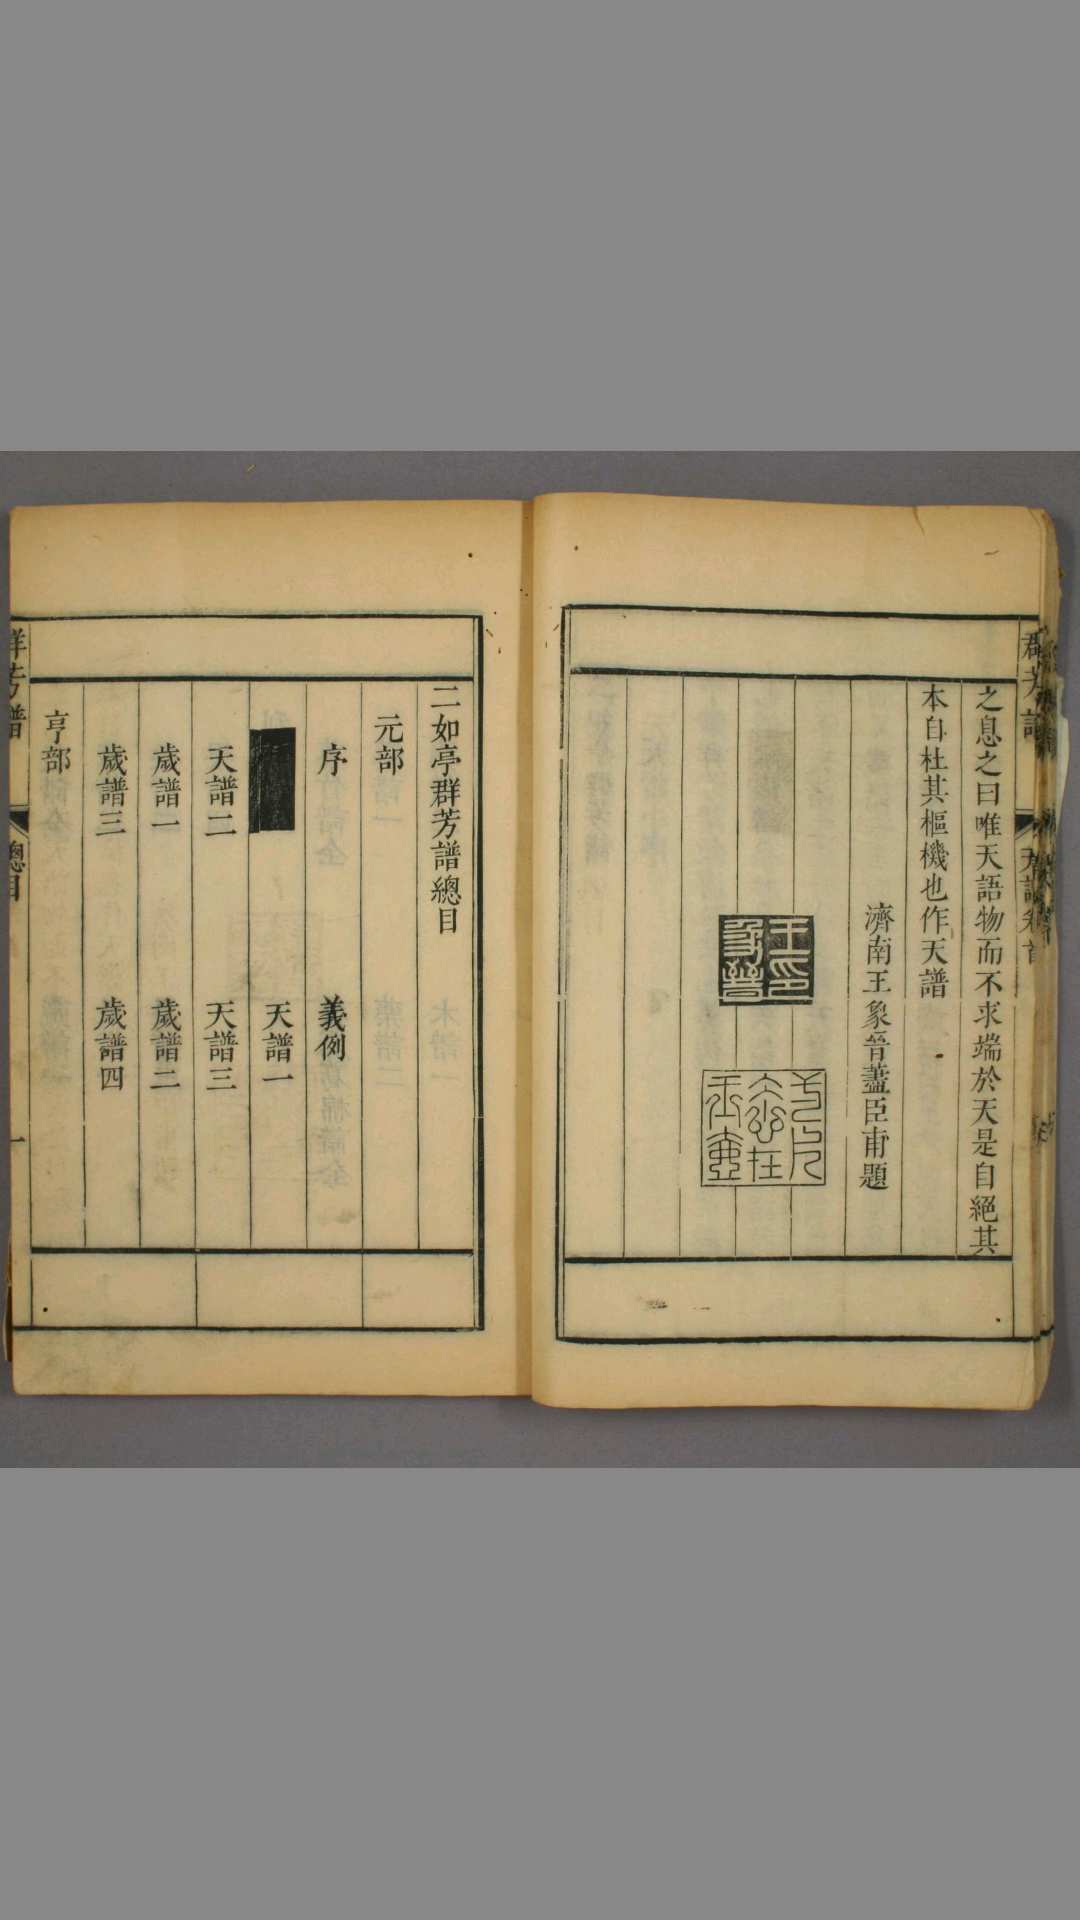 之息之曰唯天語物而不求端於天是自絕其
本自杜其樞機也作天譜
濟南王象晉藎臣甫題
王印象晉
二如亭群芳譜總目
元部
序 義例
天譜一
天譜二 天譜三
歲譜一 歲譜二
歲譜三 歲譜四
亨部
群芳譜 總目 一